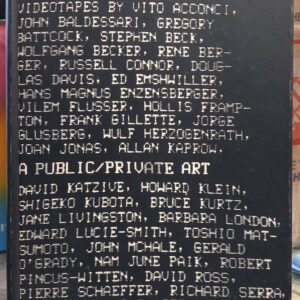 VIDEOTAPES BY VITO ACCONCI,
JOHN BALDESSARI, GREGORY
BATTCOCK, STEPHEN BECK,
WOLFGANG BECKER, RENE BER-
GER, RUSSELL CONNOR, DOUG-
LAS DAVIS, ED EMSHWILLER,
HANS MAGNUS ENZENSBERGER,
VILEM FLUSSER, HOLLIS FRAMP-
TON, FRANK GILLETTE, JORGE
GLUSBERG, WULF HERZOGENRATH,
JOAN JONAS, ALLAN KAPROW,
A PUBLIC/PRIVATE ART
DAVID KATZIVE, HOWARD KLEIN,
SHIGEKO KUBOTA, BRUCE KURTZ,
JANE LIVINGSTON, BARBARA LONDON,
EDWARD LUCIE-SMITH, TOSHIO MAT-
SUMOTO, JOHN MCHALE, GERALD
O'GRADY, NAM JUNE PAIK, ROBERT
PINCUS-WITTEN, DAVID ROSS,
PIERRE SCHAEFFER, RICHARD SERRA,